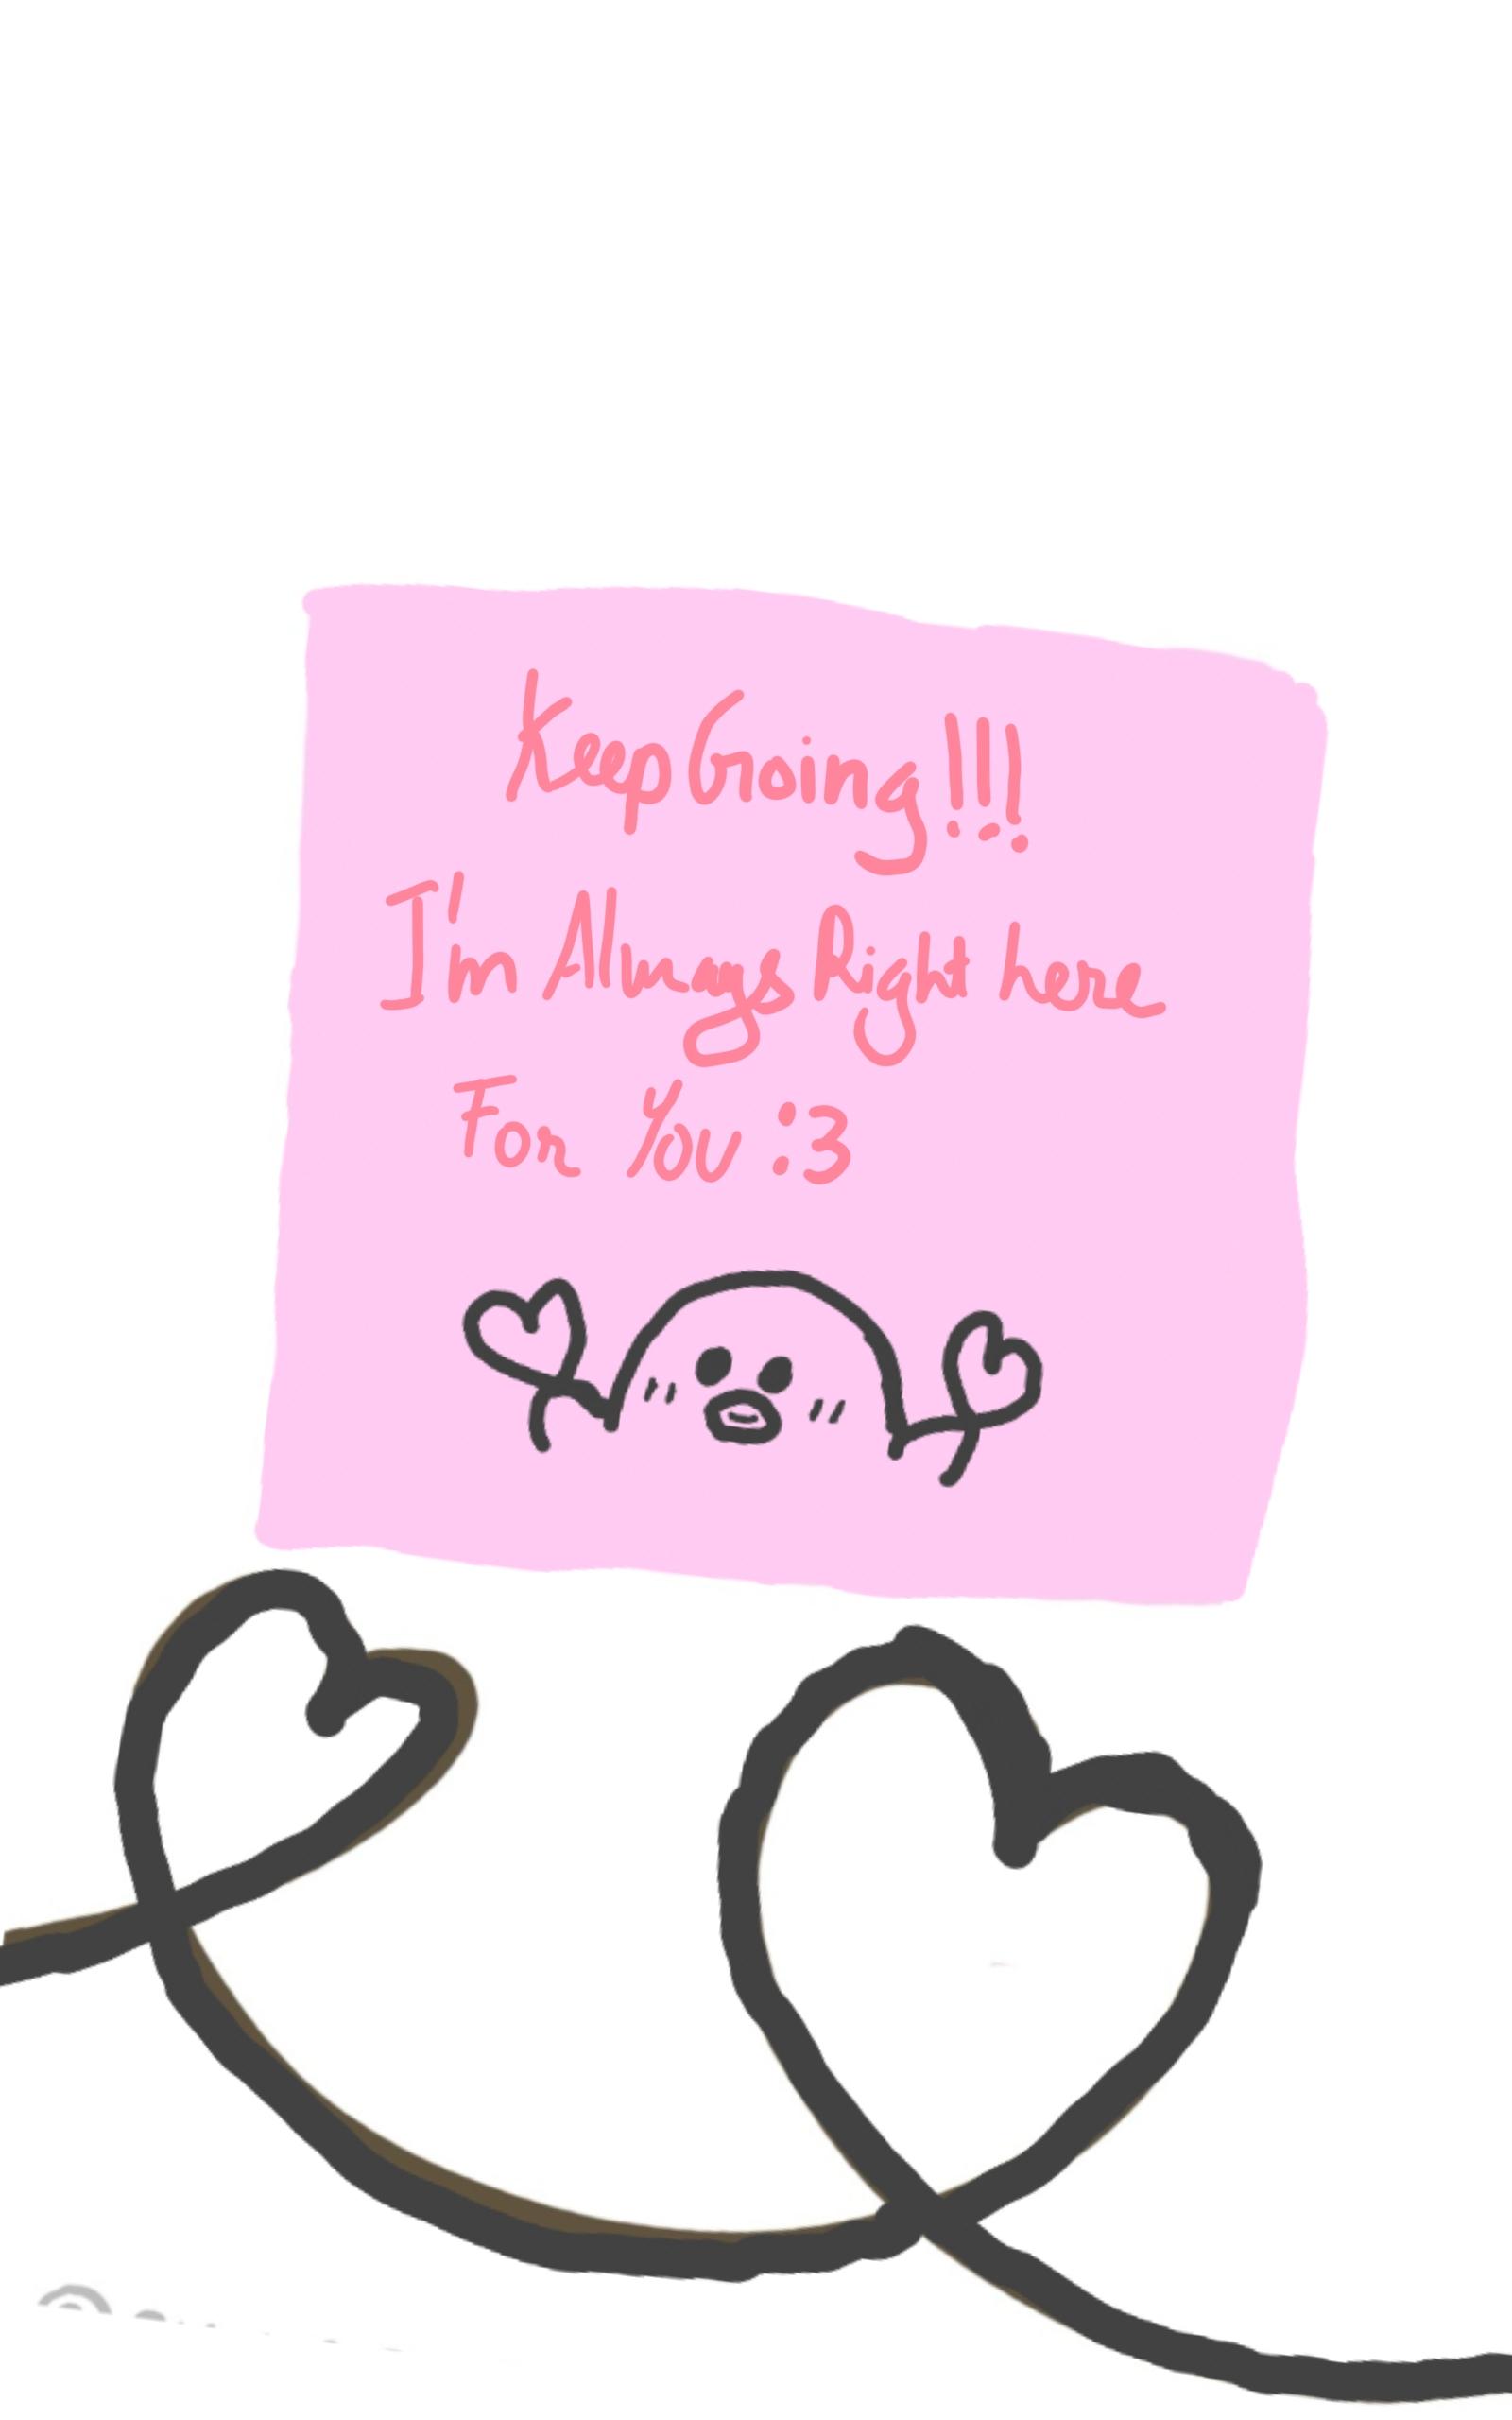 Keep Going!!!
I'm Always Right here
For You :3